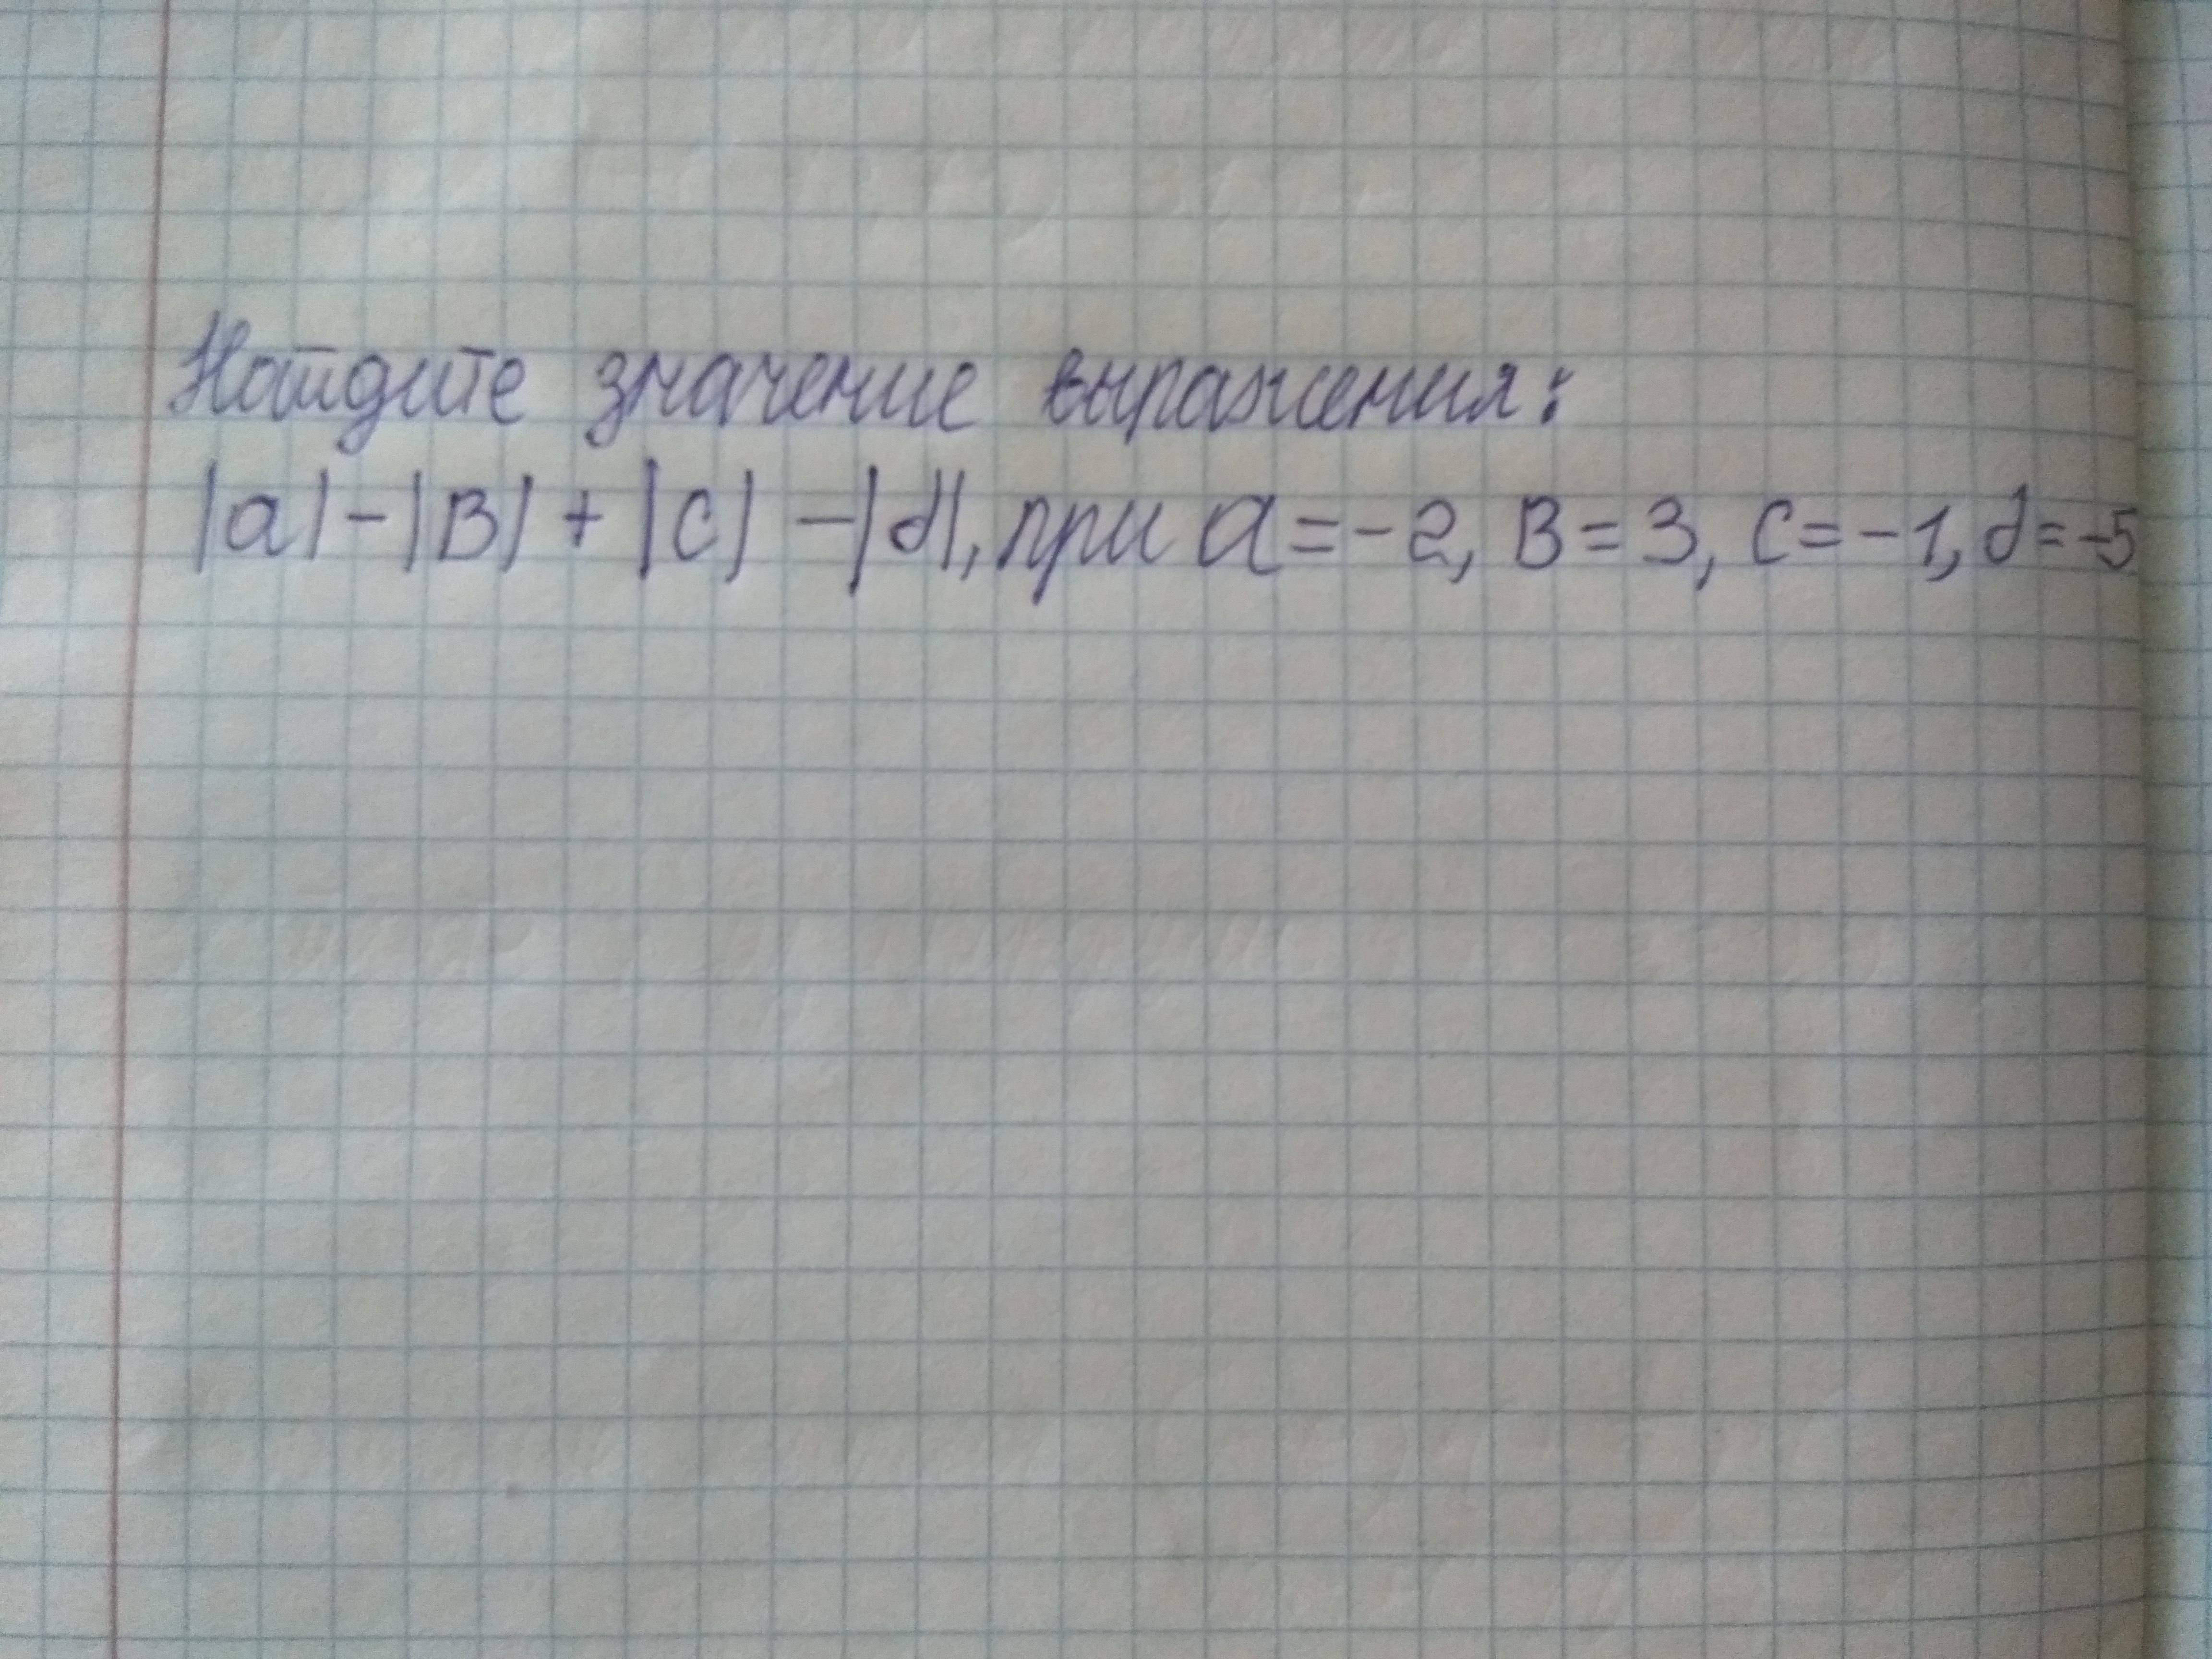 Найдите значение выражения:
|a|-|B|+|c|-|d|, при a=-2, B=3, c=-1, d=-5